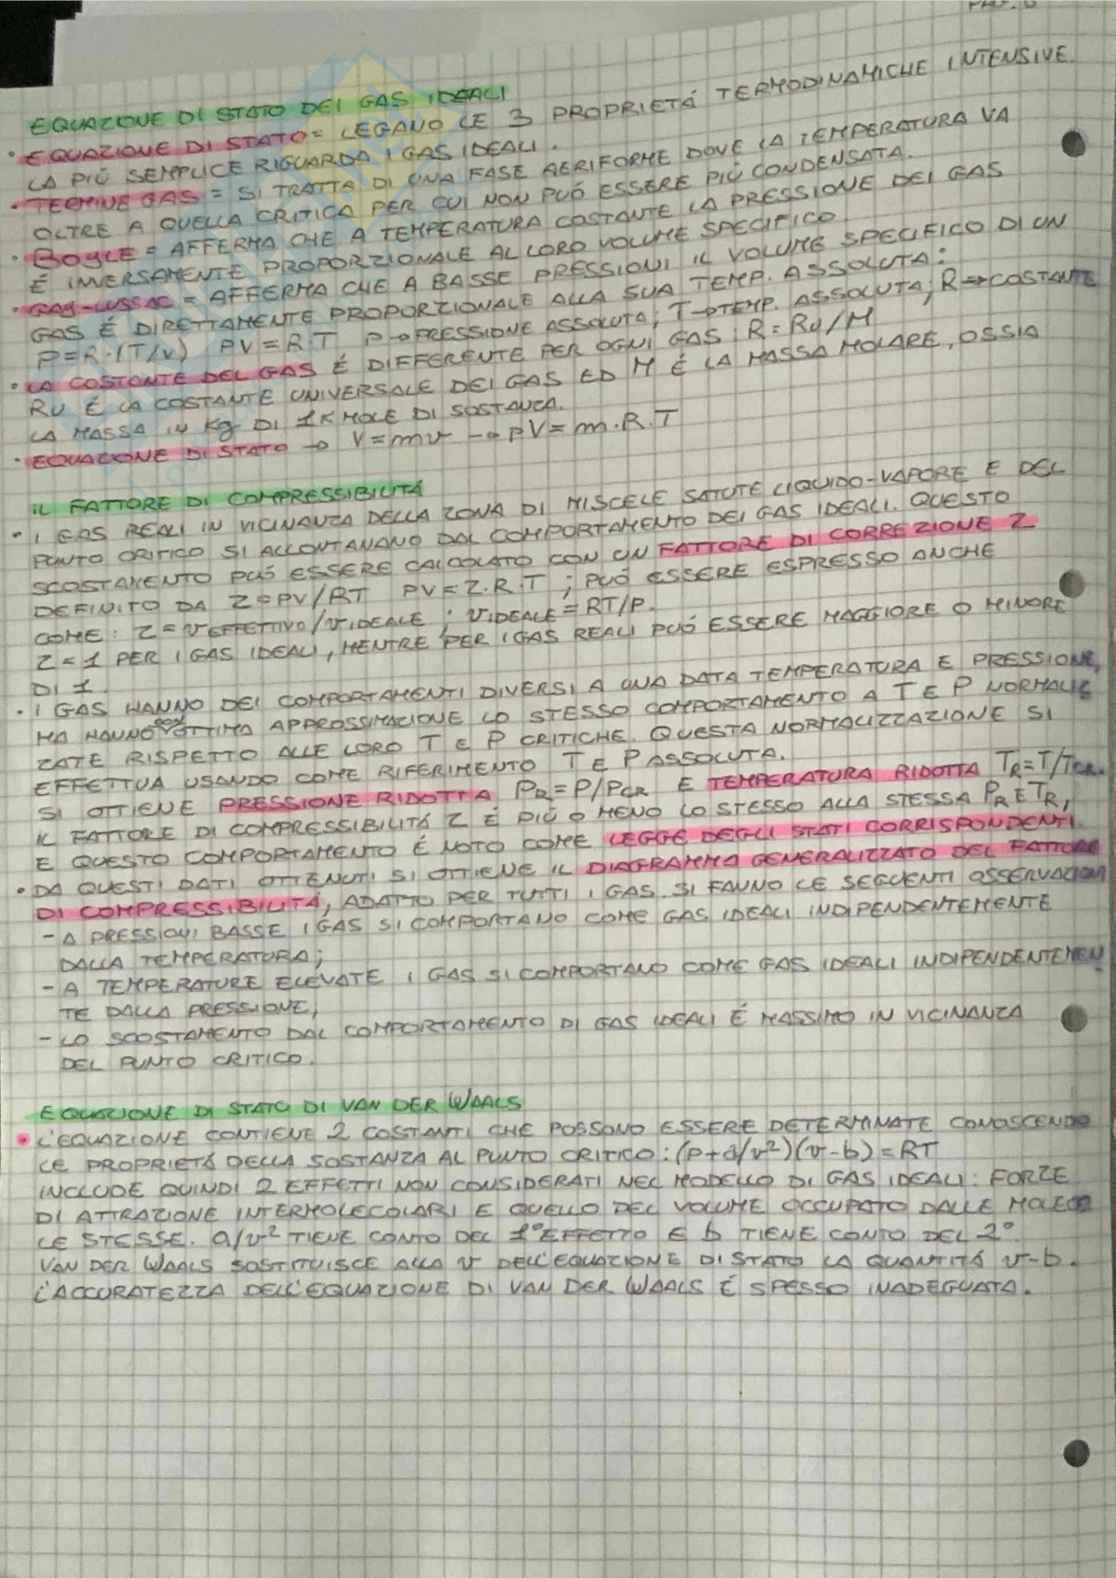 EQUAZIONE DI STATO DEI GAS IDEALI
• EQUAZIONE DI STATO = LEGANO LE 3 PROPRIETÁ TERMODINAMICHE INTENSIVE.
LA PIÚ SEMPLICE RIGUARDA I GAS IDEALI.
• TERMINE GAS = SI TRATTA DI UNA FASE AERIFORME DOVE LA TEMPERATURA VA
OLTRE A QUELLA CRITICA PER CUI NON PUÓ ESSERE PIÚ CONDENSATA.
• BOYLE = AFFERMA CHE A TEMPERATURA COSTANTE LA PRESSIONE DEI GAS
É INVERSAMENTE PROPORZIONALE AL LORO VOLUME SPECIFICO
• GAY-LUSSAC = AFFERMA CHE A BASSE PRESSIONI IL VOLUME SPECIFICO DI UN
GAS É DIRETTAMENTE PROPORZIONALE ALLA SUA TEMP. ASSOLUTA:
P=R·(T/V) PV=R·T P→PRESSIONE ASSOLUTA; T→TEMP. ASSOLUTA; R→COSTANTE
• LA COSTANTE DEL GAS É DIFFERENTE PER OGNI GAS R=RU/M
RU É LA COSTANTE UNIVERSALE DEI GAS ED M É LA MASSA MOLARE, OSSIA
LA MASSA IN Kg DI 1 KMOLE DI SOSTANZA.
• EQUAZIONE DI STATO → V=mv → pV=m·R·T
IL FATTORE DI COMPRESSIBILITÁ
• I GAS REALI IN VICINANZA DELLA ZONA DI MISCELE SATUTE LIQUIDO-VAPORE E DEL
PUNTO CRITICO SI ALLONTANANO DAL COMPORTAMENTO DEI GAS IDEALI. QUESTO
SCOSTAMENTO PUÓ ESSERE CALCOLATO CON UN FATTORE DI CORREZIONE Z
DEFINITO DA Z=PV/RT PV=Z·R·T; PUÓ ESSERE ESPRESSO ANCHE
COME: Z=VEFFETTIVO/VIDEALE; VIDEALE=RT/P.
Z=1 PER I GAS IDEALI, MENTRE PER I GAS REALI PUÓ ESSERE MAGGIORE O MINORE
DI 1.
• I GAS HANNO DEI COMPORTAMENTI DIVERSI A UNA DATA TEMPERATURA E PRESSIONE,
MA HANNO CON OTTIMA APPROSSIMAZIONE LO STESSO COMPORTAMENTO A T E P NORMALIZ
ZATE RISPETTO ALLE LORO T E P CRITICHE. QUESTA NORMALIZZAZIONE SI
EFFETTUA USANDO COME RIFERIMENTO T E P ASSOLUTA.
SI OTTIENE PRESSIONE RIDOTTA PR=P/PCR E TEMPERATURA RIDOTTA TR=T/TCR.
IL FATTORE DI COMPRESSIBILITÁ Z É PIÚ O MENO LO STESSO ALLA STESSA PR E TR,
E QUESTO COMPORTAMENTO É NOTO COME LEGGE DEGLI STATI CORRISPONDENTI.
• DA QUESTI DATI OTTENUTI SI OTTIENE IL DIAGRAMMA GENERALIZZATO DEL FATTORE
DI COMPRESSIBILITÁ, ADATTO PER TUTTI I GAS. SI FANNO LE SEGUENTI OSSERVAZIONI
- A PRESSIONI BASSE I GAS SI COMPORTANO COME GAS IDEALI INDIPENDENTEMENTE
DALLA TEMPERATURA;
- A TEMPERATURE ELEVATE I GAS SI COMPORTANO COME GAS IDEALI INDIPENDENTEMEN
TE DALLA PRESSIONE;
- LO SCOSTAMENTO DAL COMPORTAMENTO DI GAS IDEALI É MASSIMO IN VICINANZA
DEL PUNTO CRITICO.
EQUAZIONE DI STATO DI VAN DER WAALS
• L'EQUAZIONE CONTIENE 2 COSTANTI CHE POSSONO ESSERE DETERMINATE CONOSCENDO
LE PROPRIETÁ DELLA SOSTANZA AL PUNTO CRITICO: (P+a/v²)(v-b)=RT
INCLUDE QUINDI 2 EFFETTI NON CONSIDERATI NEL MODELLO DI GAS IDEALI: FORZE
DI ATTRAZIONE INTERMOLECOLARI E QUELLO DEL VOLUME OCCUPATO DALLE MOLECO
LE STESSE. a/v² TIENE CONTO DEL 1° EFFETTO E b TIENE CONTO DEL 2°.
VAN DER WAALS SOSTITUISCE ALLA V DELL'EQUAZIONE DI STATO LA QUANTITÁ v-b.
L'ACCURATEZZA DELL'EQUAZIONE DI VAN DER WAALS É SPESSO INADEGUATA.